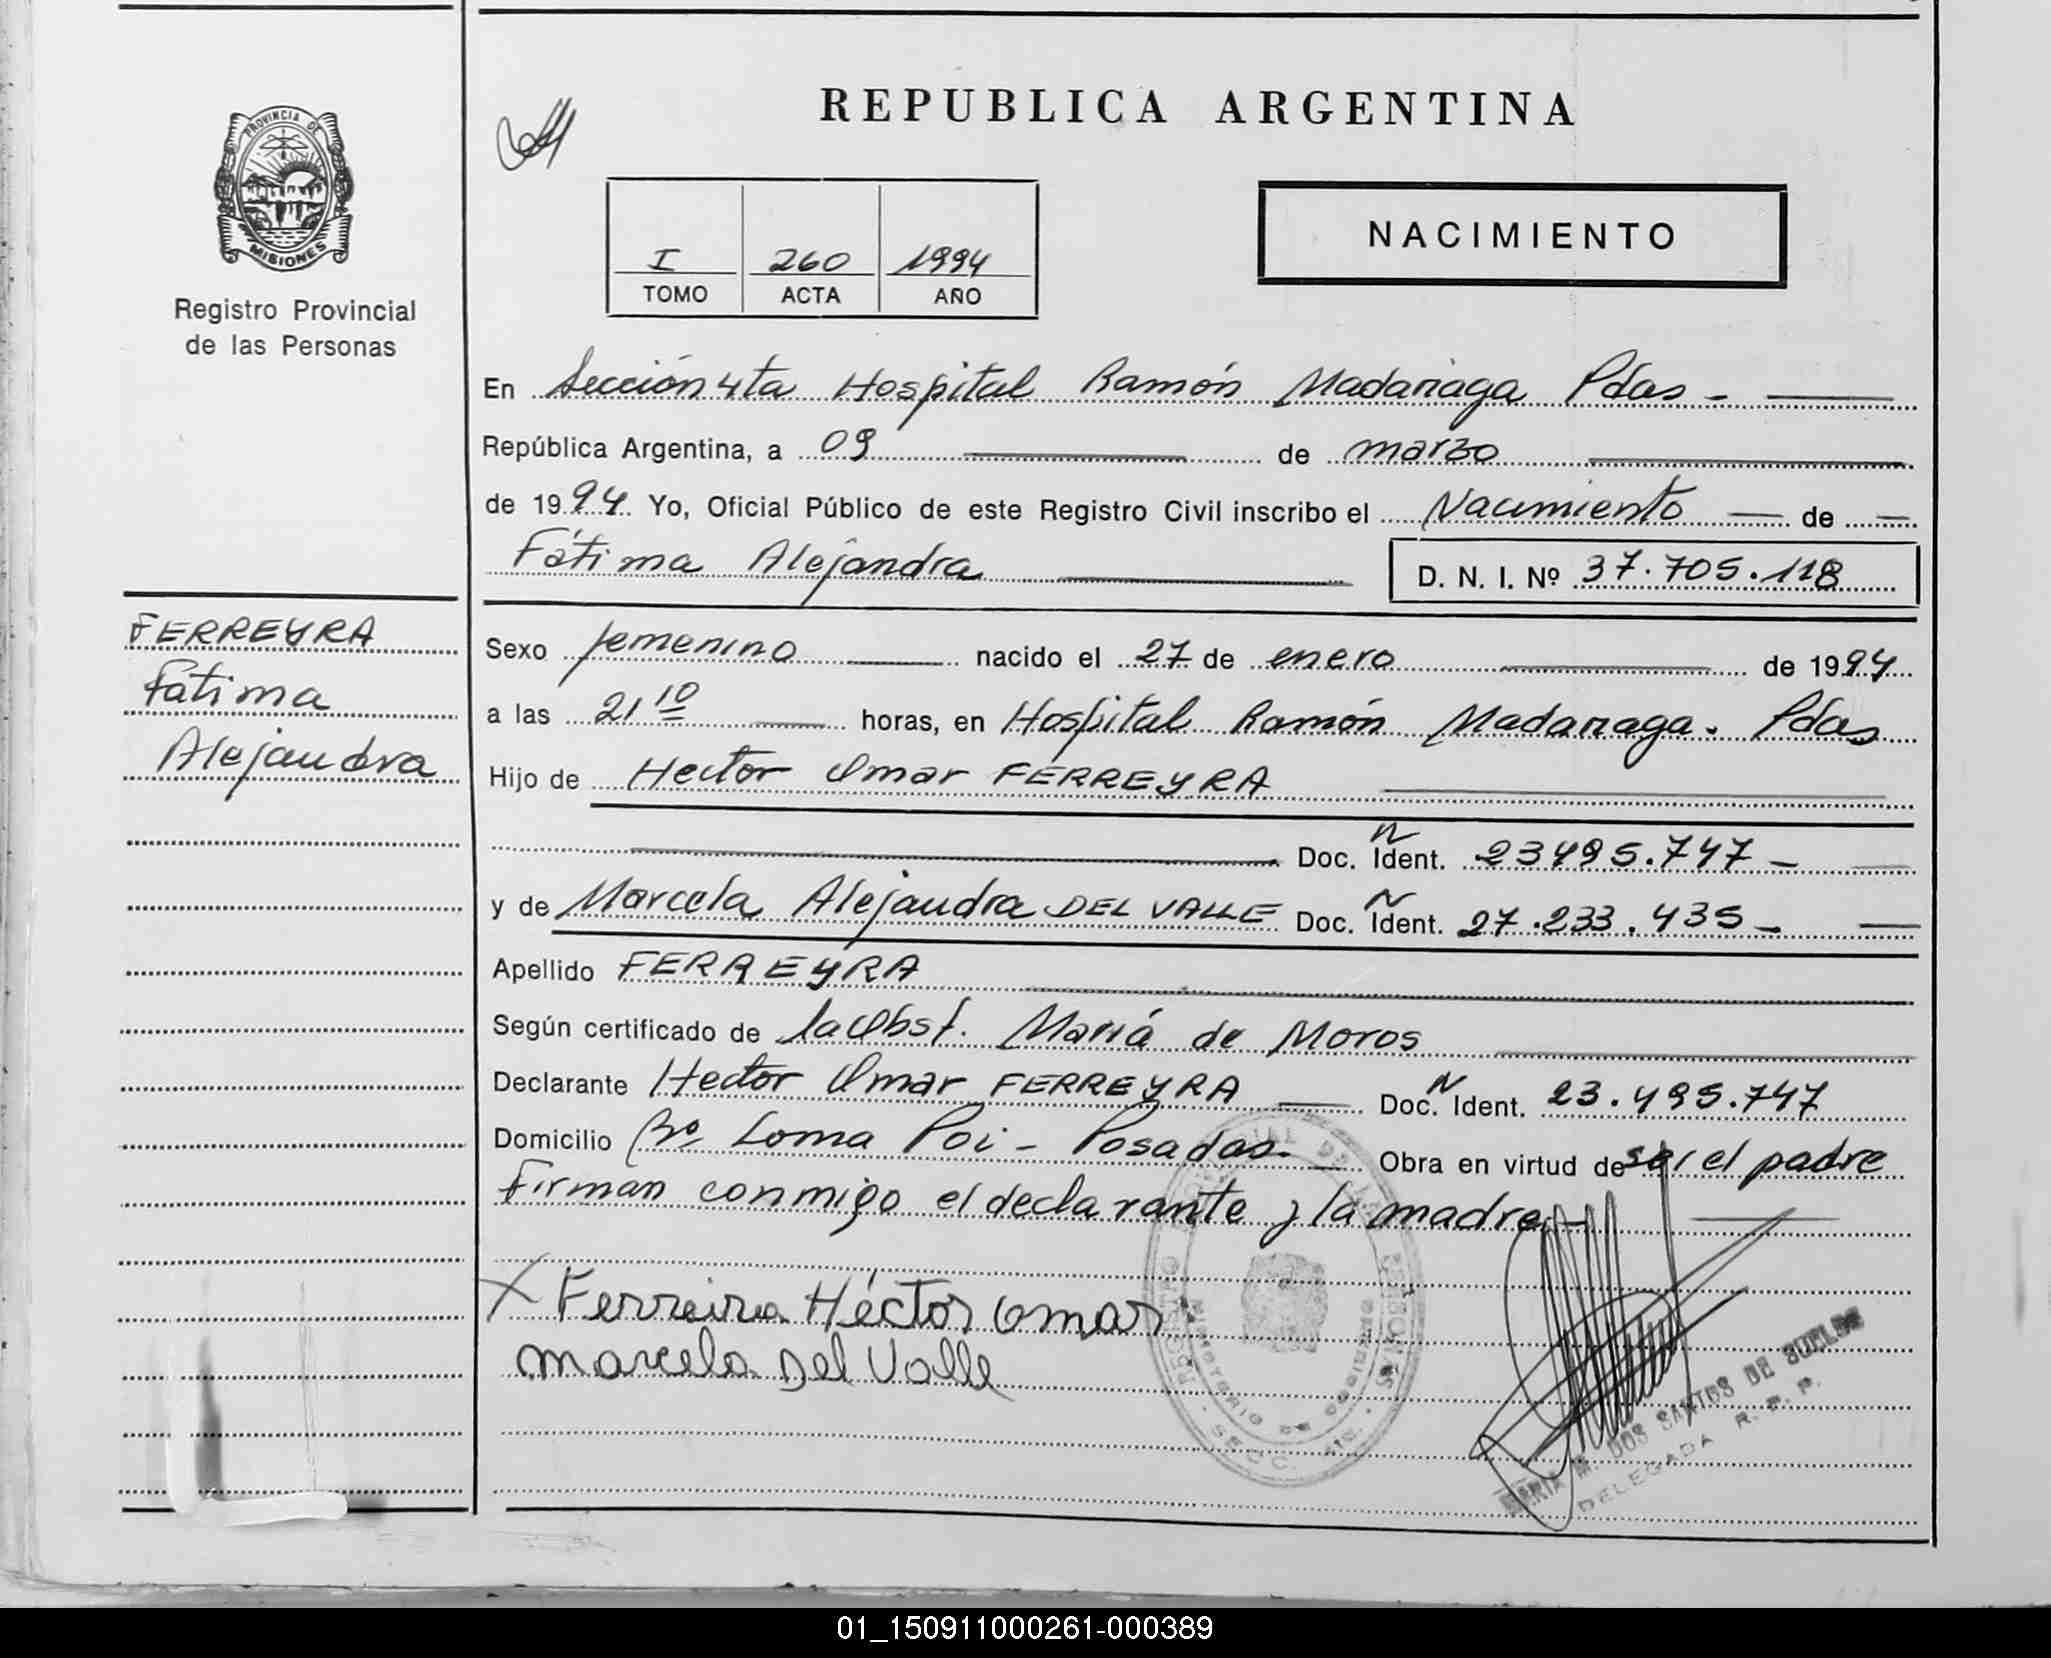 REPUBLICA ARGENTINA
PROVINCIA DE
MISIONES
Registro Provincial
de las Personas
I 260 1994
TOMO ACTA AÑO
NACIMIENTO
En Sección 4ta Hospital Ramón Madariaga Pdas -
República Argentina, a 09 de marzo
de 1994. Yo, Oficial Público de este Registro Civil inscribo el Nacimiento de
Fátima Alejandra D. N. I. Nº 37.705.118
FERREYRA
Fátima
Alejandra
Sexo femenino nacido el 27 de enero de 1994
a las 21 10 horas, en Hospital Ramón Madariaga. Pdas
Hijo de Hector Omar FERREYRA
Doc. Ident. N 23495.747 -
y de Marcela Alejandra DEL VALLE Doc. Ident. N 27.233.435 -
Apellido FERREYRA
Según certificado de la Obst. María de Moros
Declarante Hector Omar FERREYRA Doc. Ident. N 23.495.747
Domicilio Bº Loma Poi - Posadas. Obra en virtud de ser el padre
Firman conmigo el declarante y la madre. -
X Ferreira Héctor Omar
Marcela Del Valle
REGISTRO PROVINCIAL DE LAS PERSONAS
MINISTERIO DE GOBIERNO
SECC. 4ta.
MARIA M. DOS SANTOS DE SUELDO
DELEGADA R. P. P.
01_150911000261-000389